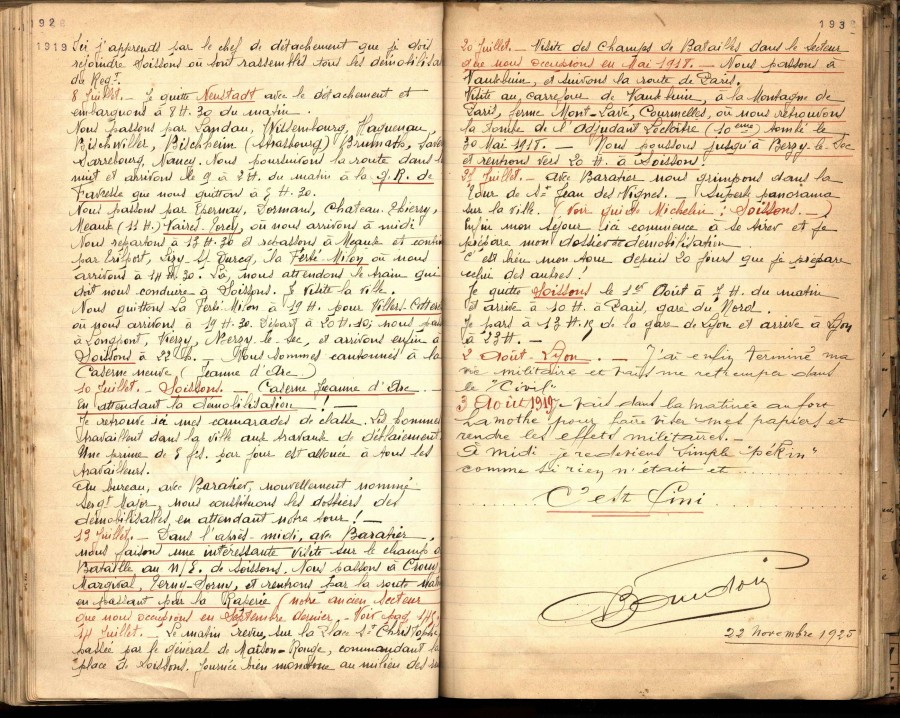 192
1919 Ici j'apprends par le chef de détachement que je dois
rejoindre Soissons où sont rassemblés tous les démobilisa
du Regt.
8 Juillet. — Je quitte Neustadt avec le détachement et
embarquons à 8 H. 30 du matin.
Nous passons par Landau, Wissembourg, Haguenau,
Bischwiller, Bischheim (Strasbourg) Brumath, Save
Sarrebourg, Nancy. Nous poursuivons la route dans
nuit et arrivons le 9 à 2 H. du matin à la g. R. de
Favresse que nous quittons à 3 H. 30.
Nous passons par Epernay, Dormans, Chateau-Thierry,
Meaux (11 H.) Vaires-Torcy, où nous arrivons à midi
Nous repartons à 13 H. 30 et repassons à Meaux et contin
par Esbly, Lizy-s/ Ourcq, la Ferté-Milon où nous
arrivons à 14 H. 30. Là, nous attendons le train qui
doit nous conduire à Soissons. Je visite la ville.
Nous quittons La Ferté Milon à 19 H. pour Villers-Cottere
où nous arrivons à 19 H. 30. Départ à 20 H. 10; nous pas
à Longpont, Vierzy, Berzy le-Sec, et arrivons enfin à
Soissons à 22 h. — Nous sommes cantonnés à la
Caserne neuve (Jeanne d'Arc)
10 Juillet. — Soissons. — Caserne Jeanne d'Arc. —
En attendant la démobilisation ! —
Je retrouve ici mes camarades de classe. Les hommes
travaillent dans la ville aux travaux de déblaiement
Une prime de 5 frs. par jour est allouée à tous les
travailleurs.
Au bureau, avec Baratier, nouvellement nommé
Sergt Major, nous constituons les dossiers des
démobilisables, en attendant notre tour ! —
13 Juillet. — Dans l'après-midi, avec Baratier,
nous faisons une intéressante visite sur le champ d
Bataille au N/E. de Soissons. Nous passons à Crouy,
Margival, Terny-Sorny, et rentrons par la route
en passant par la Raperie (notre ancien secteur
que nous occupions en Septembre dernier. Voir pag. 149.
14 Juillet. — Le matin revue, sur la Place St Christophe
passée par le général de Maison-Rouge, commandant la
place de Soissons. Journée bien monotone au milieu des
193
20 Juillet. — Visite des Champs de Batailles dans le secteur
que nous occupions en Mai 1918. — Nous passons à
Vauxbuin, et suivons la route de Paris.
Visite au carrefour de Vauxbuin, à la Montagne de
Paris, ferme Mont-Lavé, Courmelles, où nous retrouvons
la tombe de l'Adjudant Leclaire (10ème) tombé le
30 Mai 1918. — Nous poussons jusqu'à Berzy-le-Sec
et rentrons vers 20 H. à Soissons.
25 Juillet. — avec Baratier nous grimpons dans la
Tour de St Jean des Vignes. — Superbe panorama
sur la ville. (Voir guide Michelin : Soissons. —)
Enfin mon séjour ici commence à se tirer et je
prépare mon dossier de démobilisation.
C'est bien mon tour depuis 20 jours que je prépare
celui des autres !
Je quitte Soissons le 1er Août à 7 H. du matin
et arrive à 10 H. à Paris, gare du Nord.
Je pars à 13 H. 15 de la gare de Lyon et arrive à Lyon
à 23 H. —
2 Août. — Lyon. — J'ai enfin terminé ma
vie militaire et vais me retremper dans
le "Civil"
3 Août 1919. Vais dans la matinée au fort
Lamothe pour faire viser mes papiers et
rendre les effets militaires. —
À midi je redeviens simple "pékin"
comme si rien n'était et
C'est Fini
22 Novembre 1925